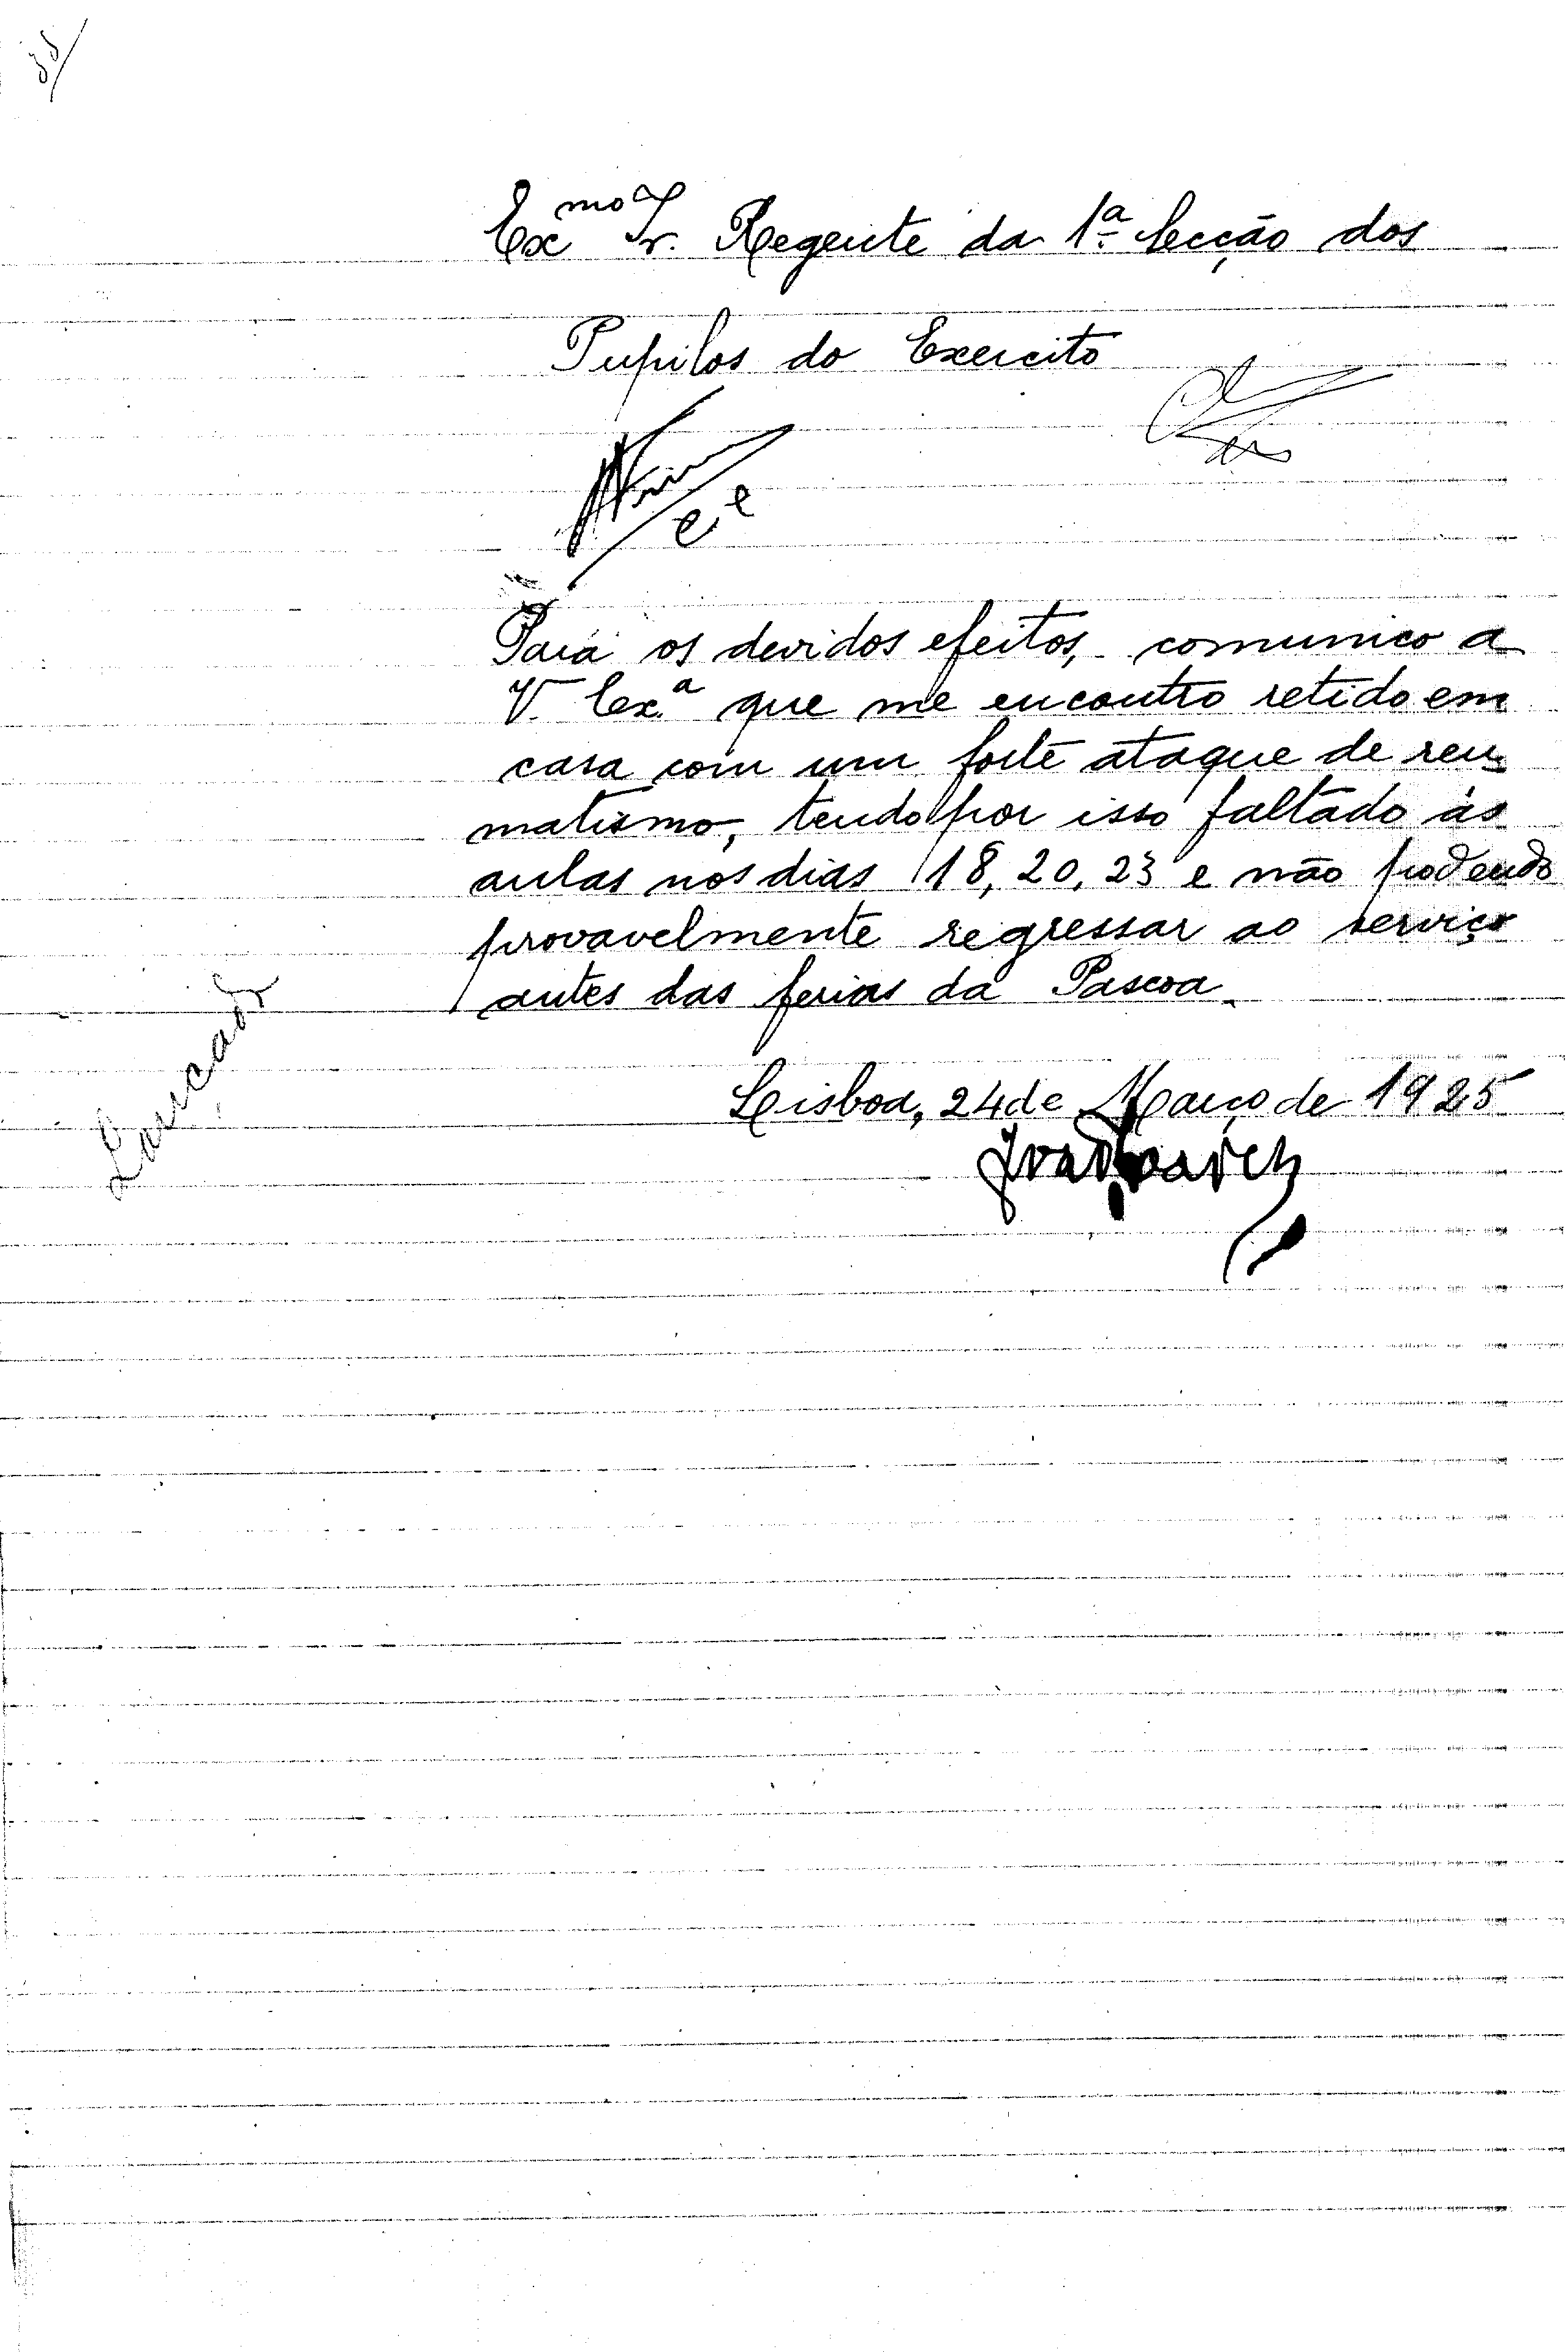 Ex.mo Sr. Regente da 1.ª Secção dos
Pupilos do Exercito
Para os devidos efeitos, comunico a
V. Ex.ª que me encontro retido em
casa com um forte ataque de reu-
matismo, tendo por isso faltado ás
aulas nos dias 18, 20, 23 e não podendo
provavelmente regressar ao serviço
antes das ferias da Pascoa.
Lançado
Lisboa, 24 de Março de 1925
João Soares